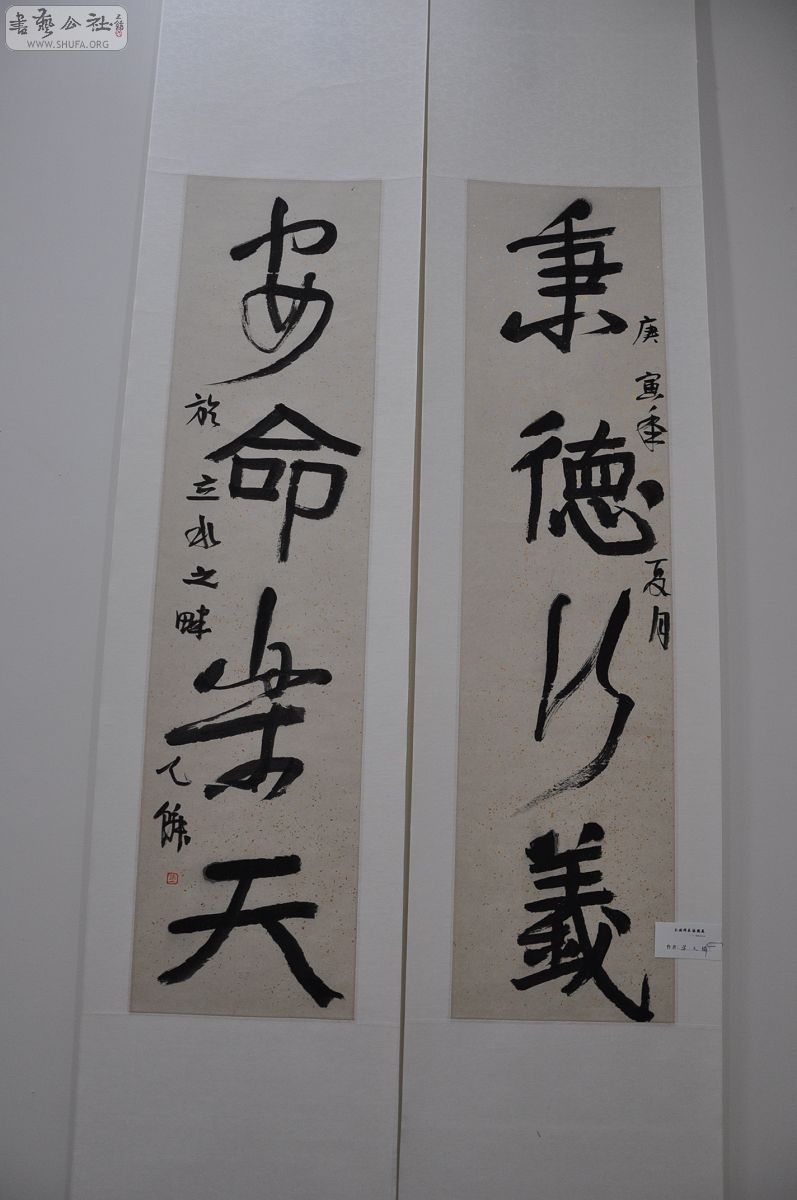 書藝公社
WWW.SHUFA.ORG
秉德行義
庚寅年夏月
安命樂天
於立水之畔